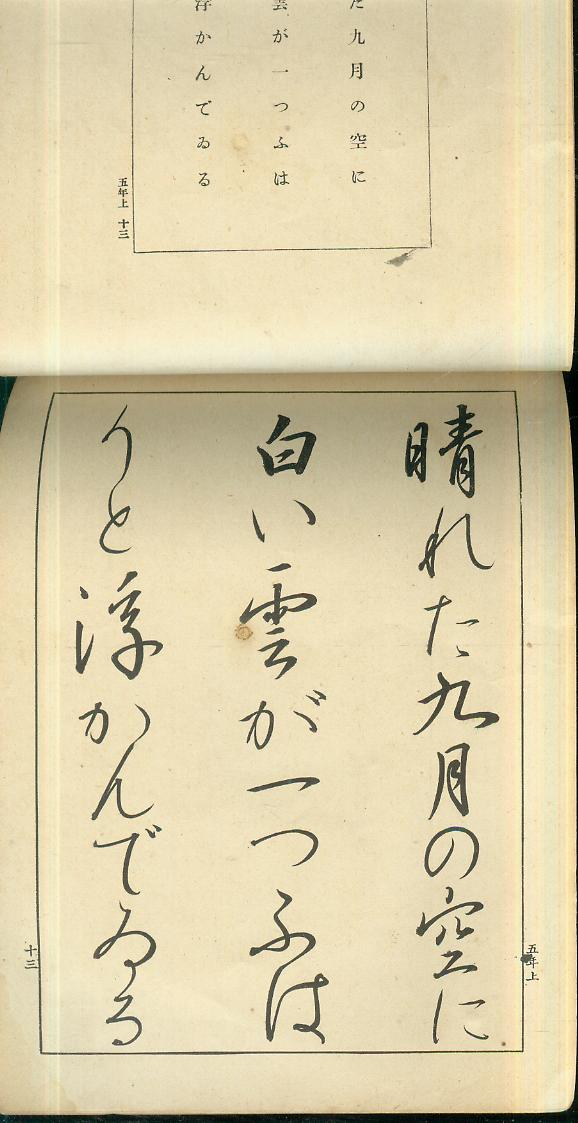 た九月の空に
雲が一つふは
浮かんでゐる
五年上 十三
五年上
晴れた九月の空に
白い雲が一つふは
りと浮かんでゐる
十三